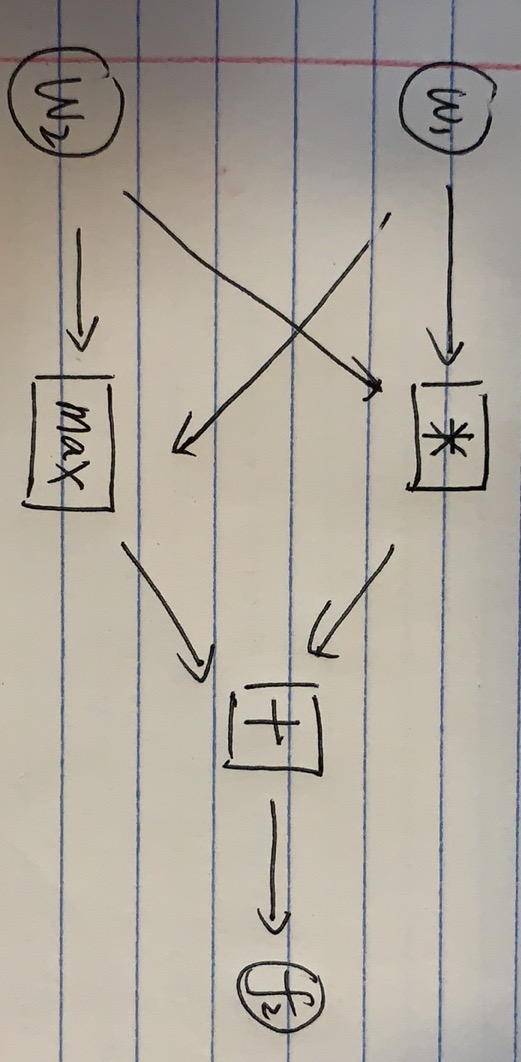 W₁
*
W₂
max
+
f₂